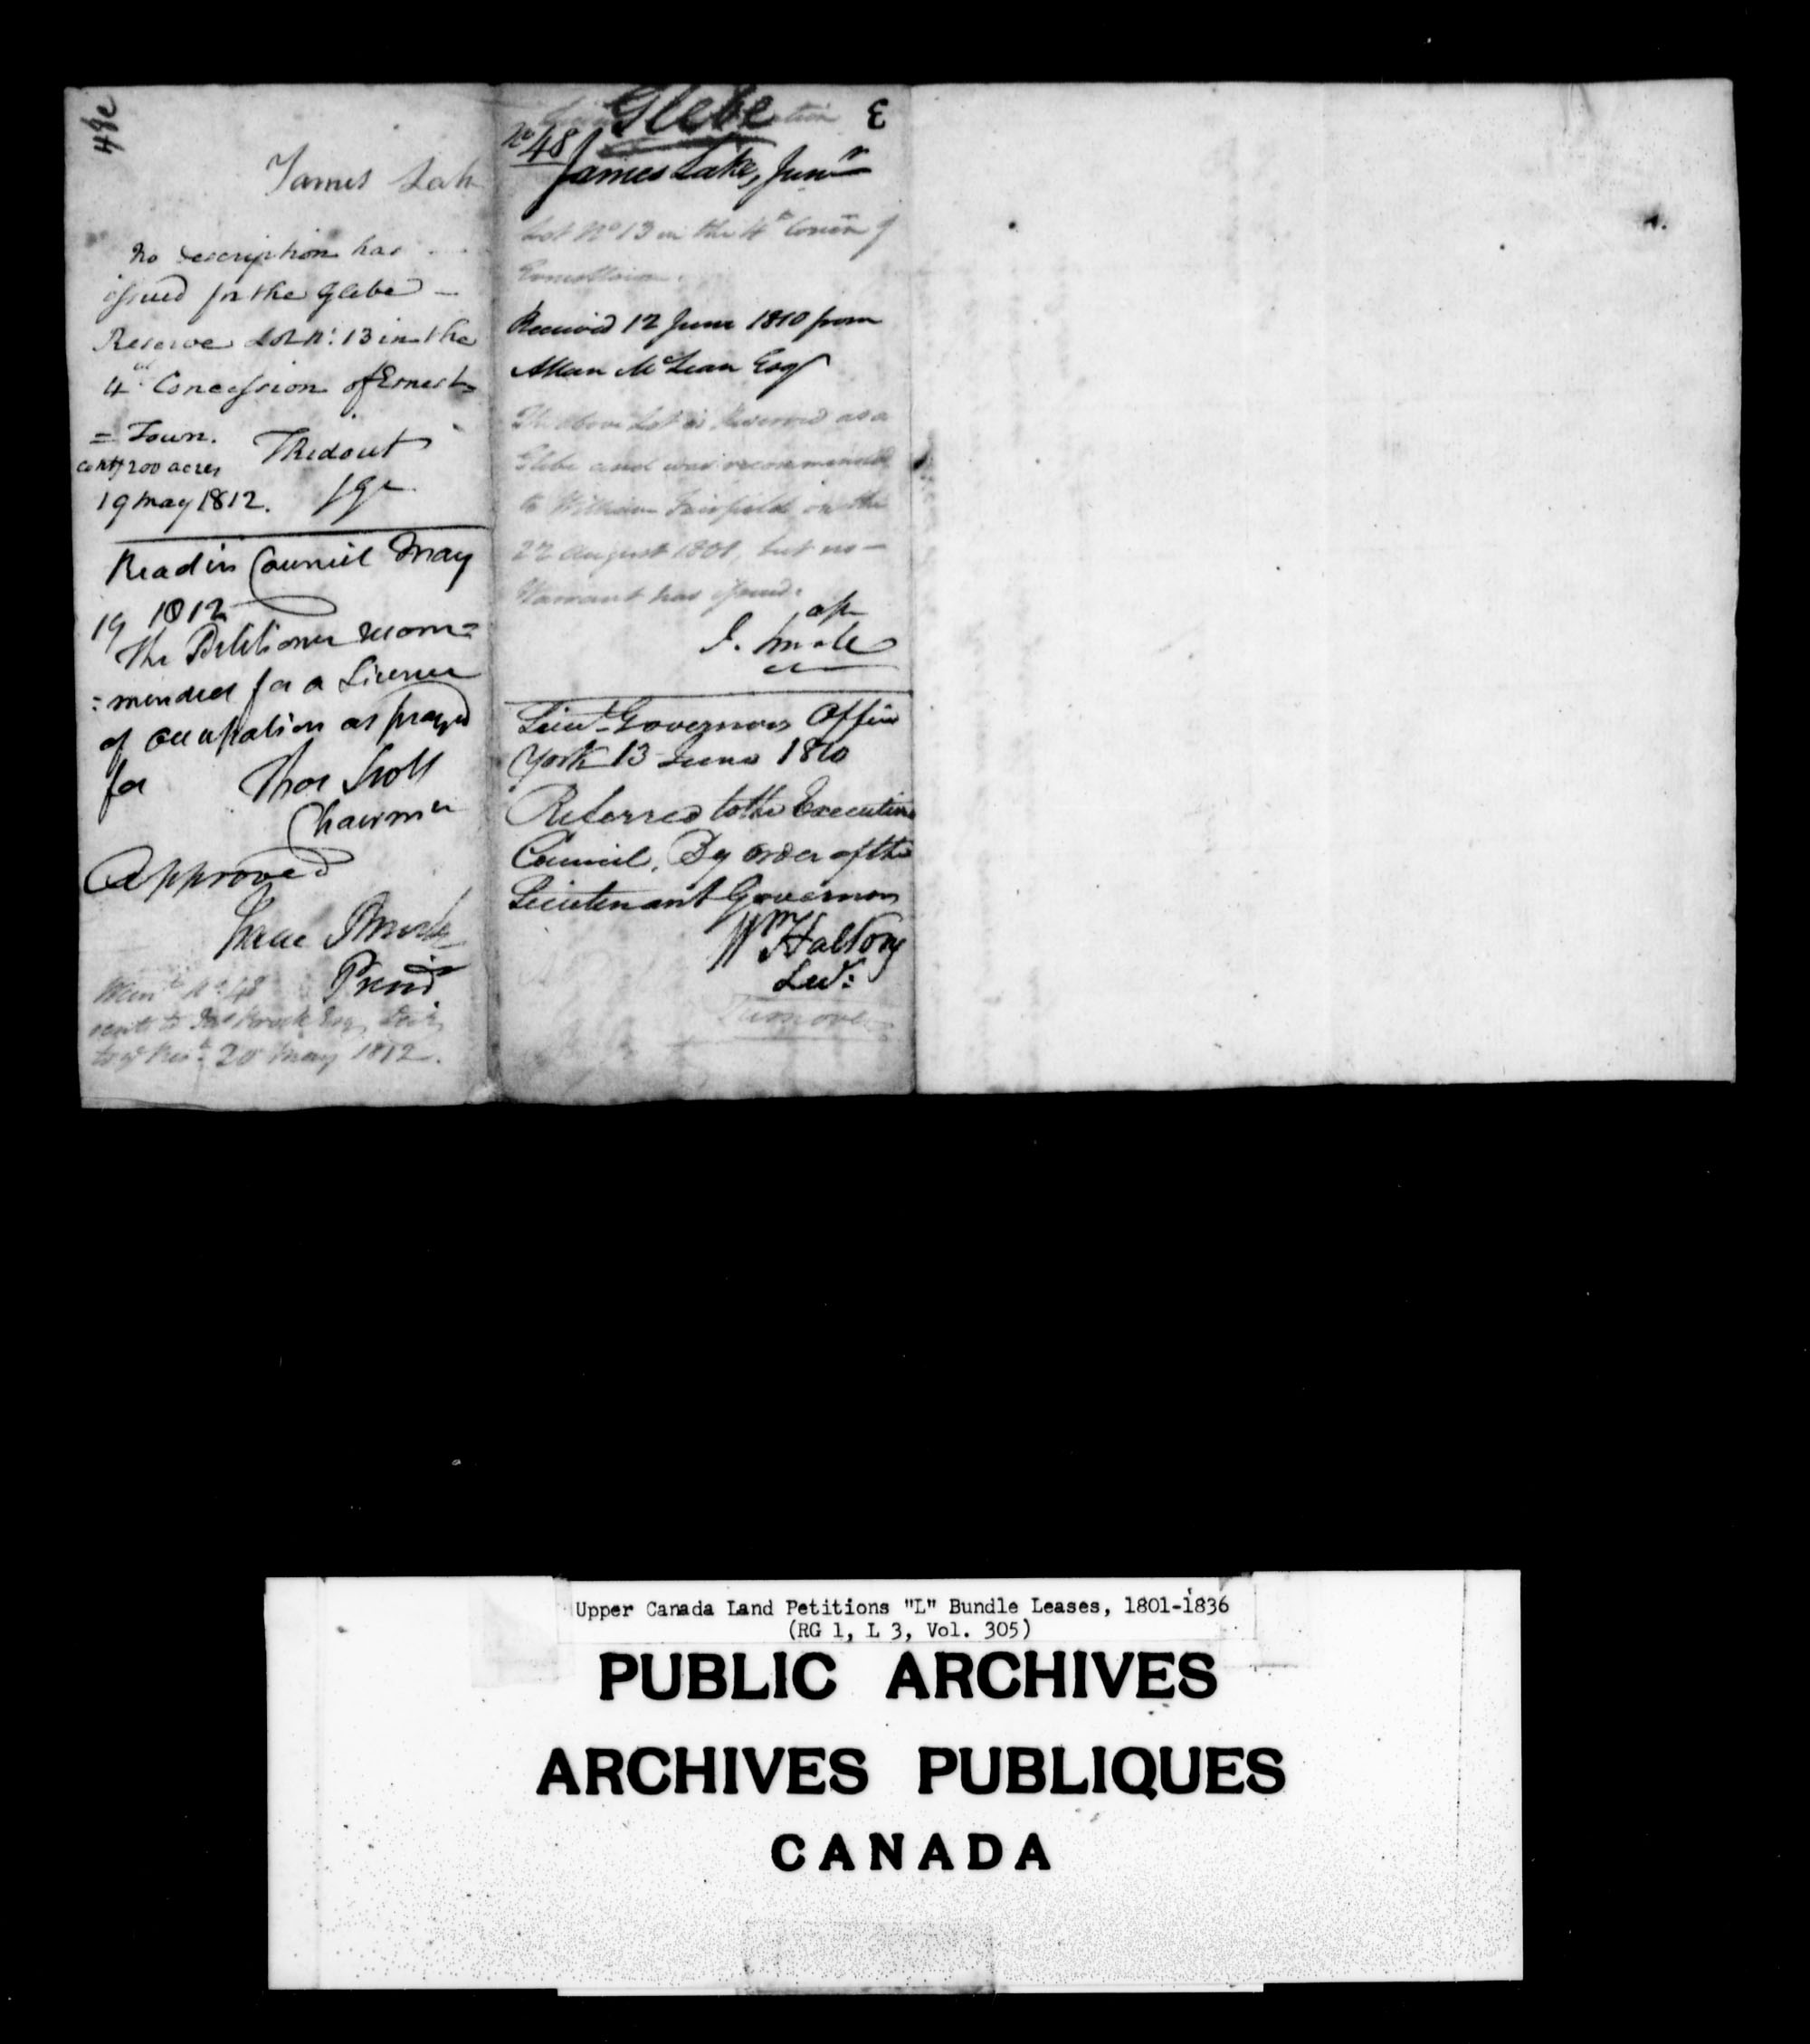 48e
James Lake
No description has
issued for the Glebe —
Reserve Lot No: 13 in the
4th Concession of Ernest=
= Town.
contg 200 acres
Thidout
19 May 1812.
Read in Council May
19 1812
The Petitioner recom=
=mended for a Licence
of occupation as prayed
for
Thos Scott
Chairmn
Approved
Isaac Brock
Presidt
No. 48
20 May 1812.
Glebe
E
No 48
James Lake, Junr
Lot No 13 in the 4th Conn of
Ernesttown.
Received 12 June 1810 from
Allan McLean Esqr
The above Lot is Reserved as a
Glebe and was recommended
to William Fairfield on the
22 August 1801, but no —
Warrant has issued.
J. Small
Lieut Governors Office
York 13 June 1810
Referred to the Executive
Council, By order of the
Lieutenant Governor
Wm Halton
Secy:
Turn over
Upper Canada Land Petitions "L" Bundle Leases, 1801-1836
(RG 1, L 3, Vol. 305)
PUBLIC ARCHIVES
ARCHIVES PUBLIQUES
CANADA